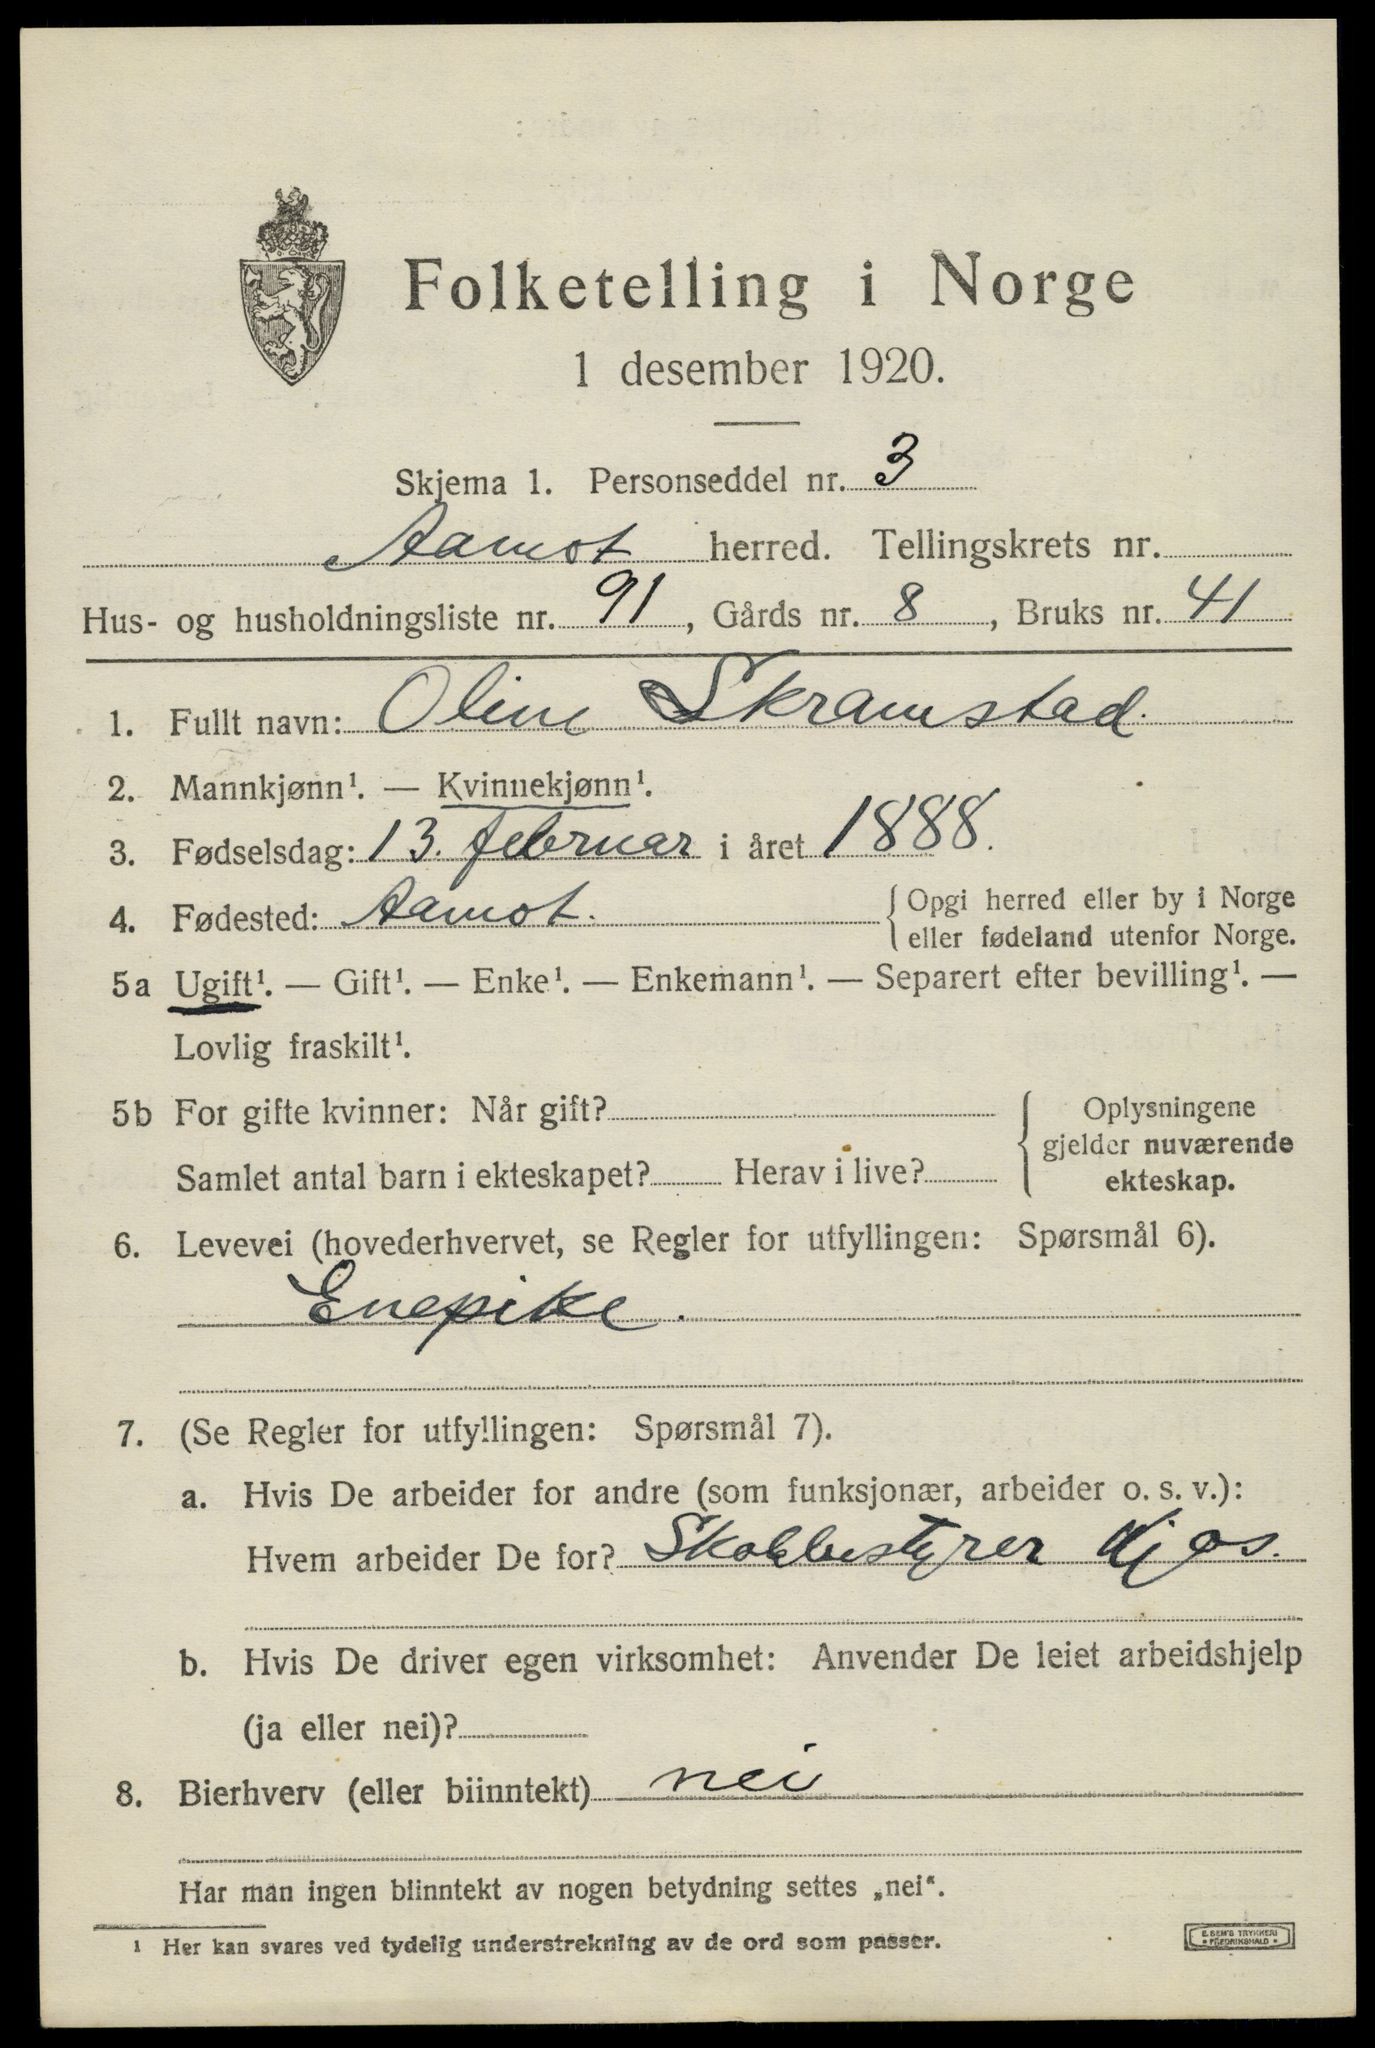 Folketelling i Norge
1 desember 1920.
Skjema 1. Personseddel nr. 3
Aamot herred. Tellingskrets nr.
Hus- og husholdningsliste nr. 91, Gårds nr. 8, Bruks nr. 41
1. Fullt navn: Oline Skramstad.
2. Mannkjønn¹. — Kvinnekjønn¹.
3. Fødselsdag: 13. februar i året 1888.
4. Fødested: Aamot. { Opgi herred eller by i Norge
eller fødeland utenfor Norge.
5a Ugift¹. — Gift¹. — Enke¹. — Enkemann¹. — Separert efter bevilling¹. —
Lovlig fraskilt¹.
5b For gifte kvinner: Når gift? { Oplysningene
gjelder nuværende
Samlet antal barn i ekteskapet? Herav i live? ekteskap.
6. Levevei (hovederhvervet, se Regler for utfyllingen: Spørsmål 6).
Enepike.
7. (Se Regler for utfyllingen: Spørsmål 7).
a. Hvis De arbeider for andre (som funksjonær, arbeider o. s. v.):
Hvem arbeider De for? Skolebestyrer Kjos.
b. Hvis De driver egen virksomhet: Anvender De leiet arbeidshjelp
(ja eller nei)?
8. Bierhverv (eller biinntekt) nei
Har man ingen biinntekt av nogen betydning settes „nei".
¹ Her kan svares ved tydelig understrekning av de ord som passer.
E. SEM'S TRYKKERI
* FREDRIKSHALD *